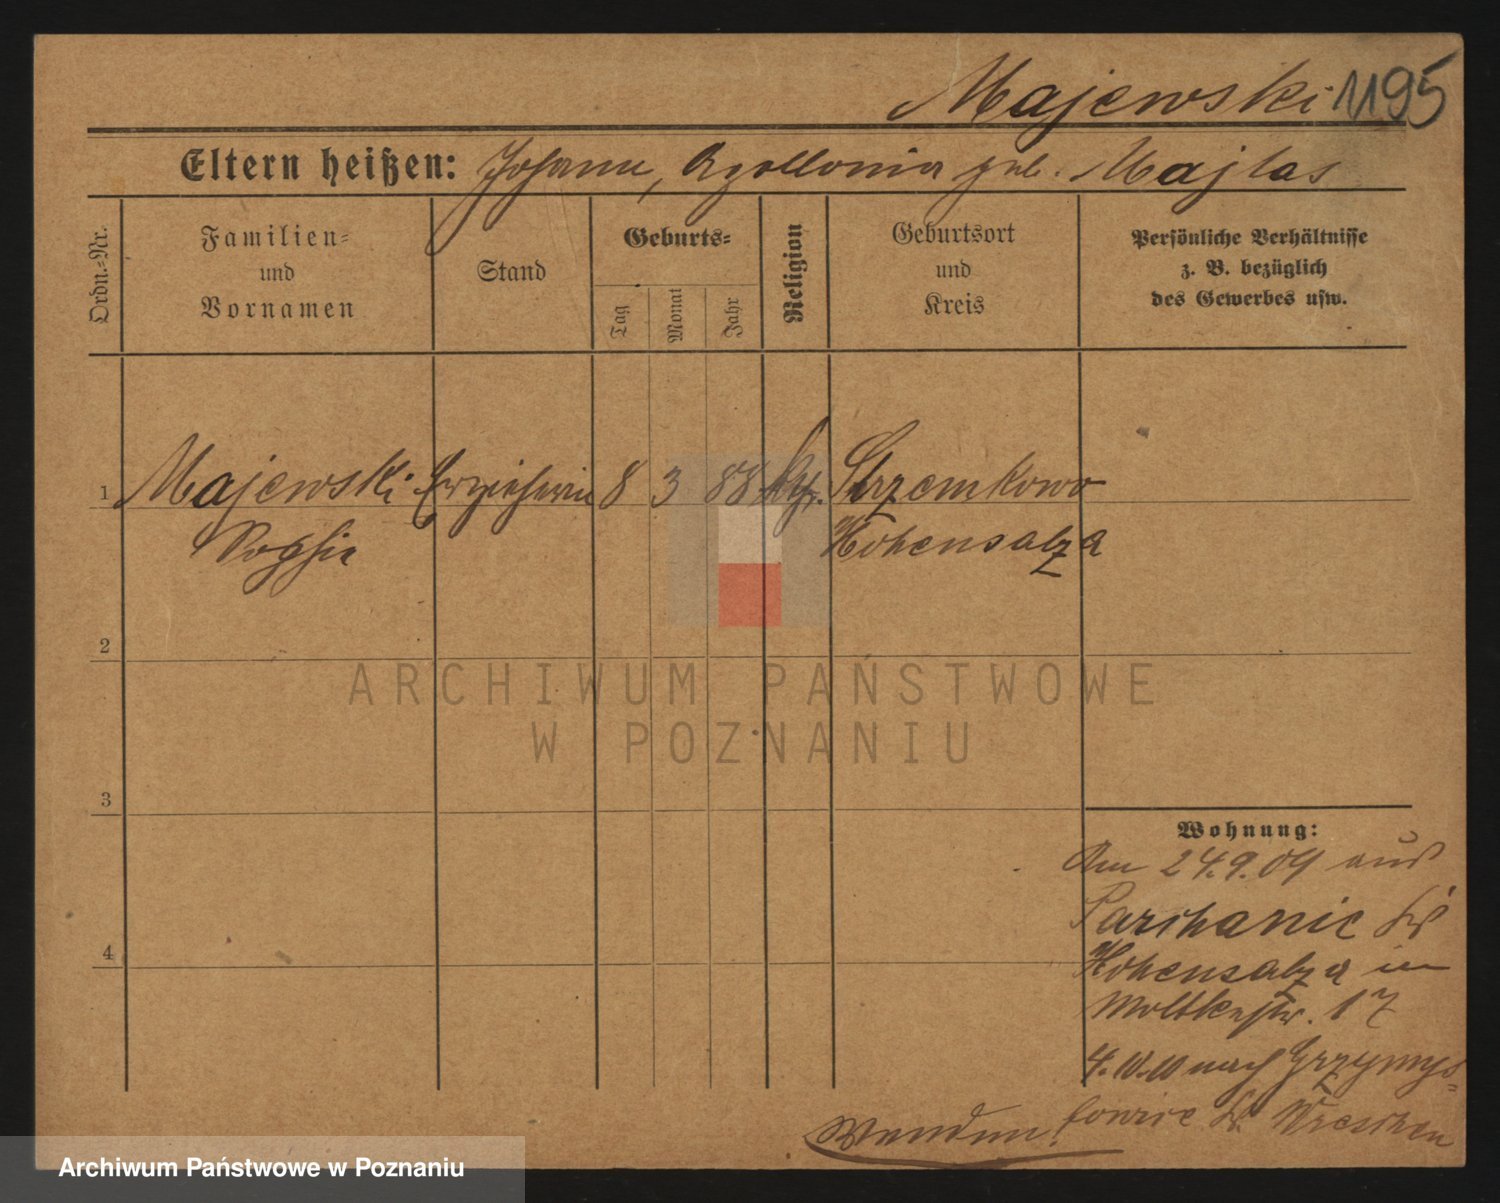 Majewski 1195
Eltern heißen: Johann, Apollonia geb. Majtas
Ordn.-Nr.
Familien-
und
Vornamen
Stand
Geburts-
Tag
Monat
Jahr
Religion
Geburtsort
und
Kreis
Persönliche Verhältnisse
z. B. bezüglich
des Gewerbes usw.
1 Majewski Erzieherin 8 3 88 Strzemkowo
Sophie Hohensalza
2
3
4
Wohnung:
Am 24.9.09 aus
Parchanie Krs
Hohensalza in
Moltkestr. 17
4.10.10 nach Grzymys-
lowice Kr. Wreschen
Wenden!
ARCHIWUM PAŃSTWOWE
W POZNANIU
Archiwum Państwowe w Poznaniu